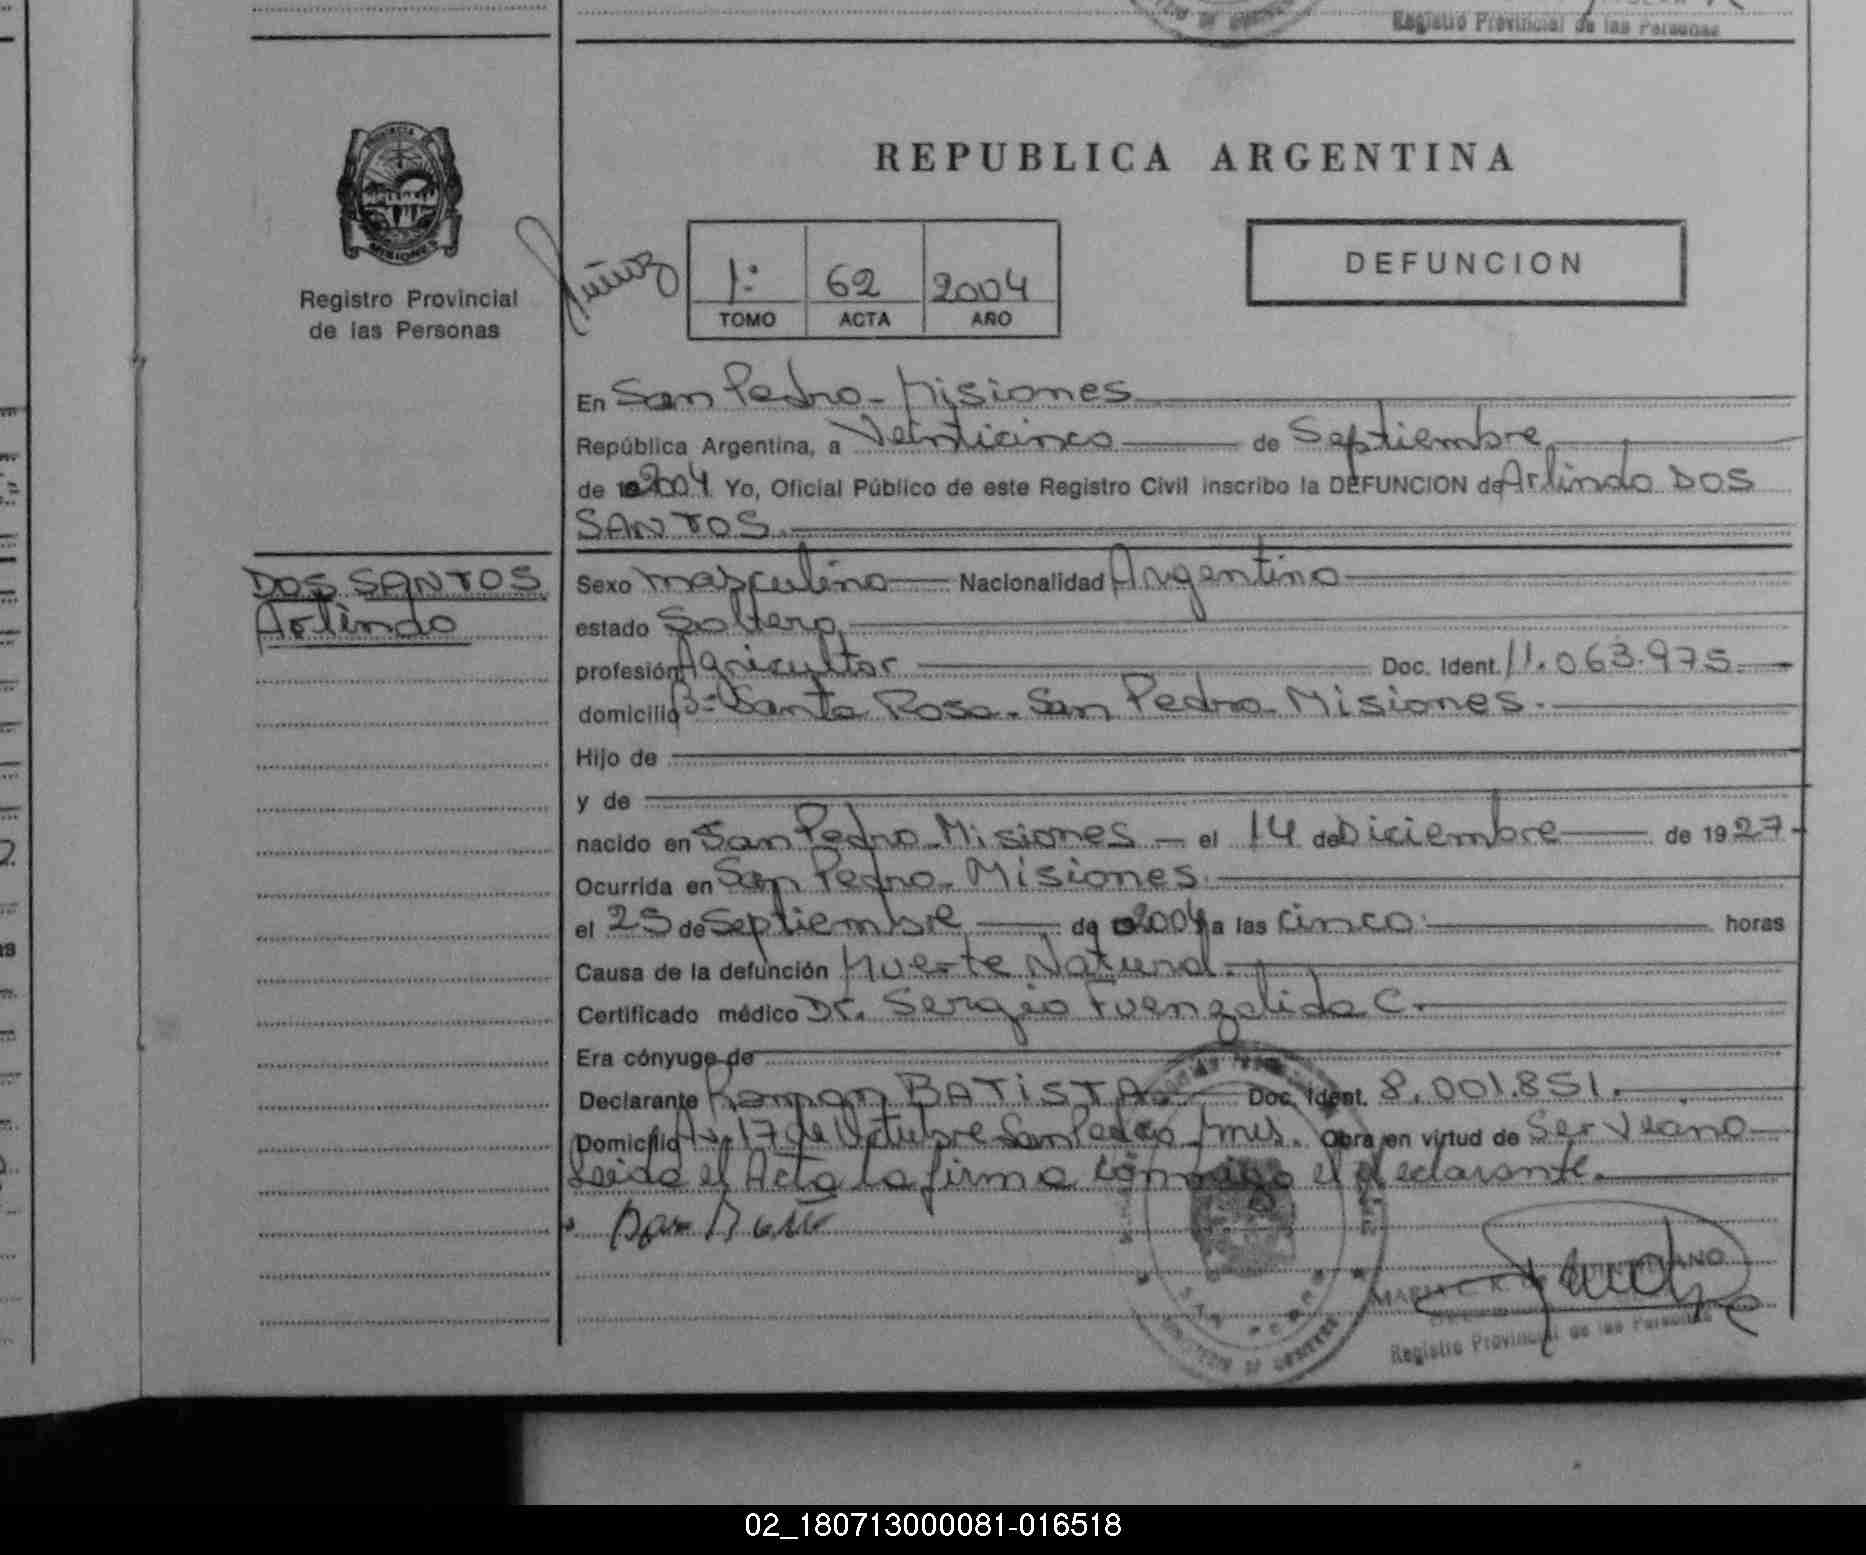 Registro Provincial de las Personas
REPUBLICA ARGENTINA
PROVINCIA DE
MISIONES
Registro Provincial
de las Personas
1:
62
2004
TOMO
ACTA
AÑO
DEFUNCION
En San Pedro - Misiones
República Argentina, a Veinticinco de Septiembre
de 2004 Yo, Oficial Público de este Registro Civil inscribo la DEFUNCION de Arlindo DOS
SANTOS.
DOS SANTOS
Arlindo
Sexo masculino Nacionalidad Argentino
estado Soltero
profesión Agricultor Doc. Ident. 11.063.975.
domicilio B= Santa Rosa - San Pedro - Misiones.
Hijo de
y de
nacido en San Pedro - Misiones - el 14 de Diciembre de 1927
Ocurrida en San Pedro - Misiones.
el 25 de Septiembre de 2004 a las cinco horas
Causa de la defunción Muerte Natural.
Certificado médico Dr. Sergio Fuenzalida C.
Era cónyuge de
Declarante Ramon BATISTA Doc. Ident. 8.001.851.
Domicilio Av. 17 de Octubre San Pedro Mnes. Obra en virtud de Ser Vesino
Leida el Acta la firma conmigo el declarante.
Registro Provincial de las Personas
02_180713000081-016518